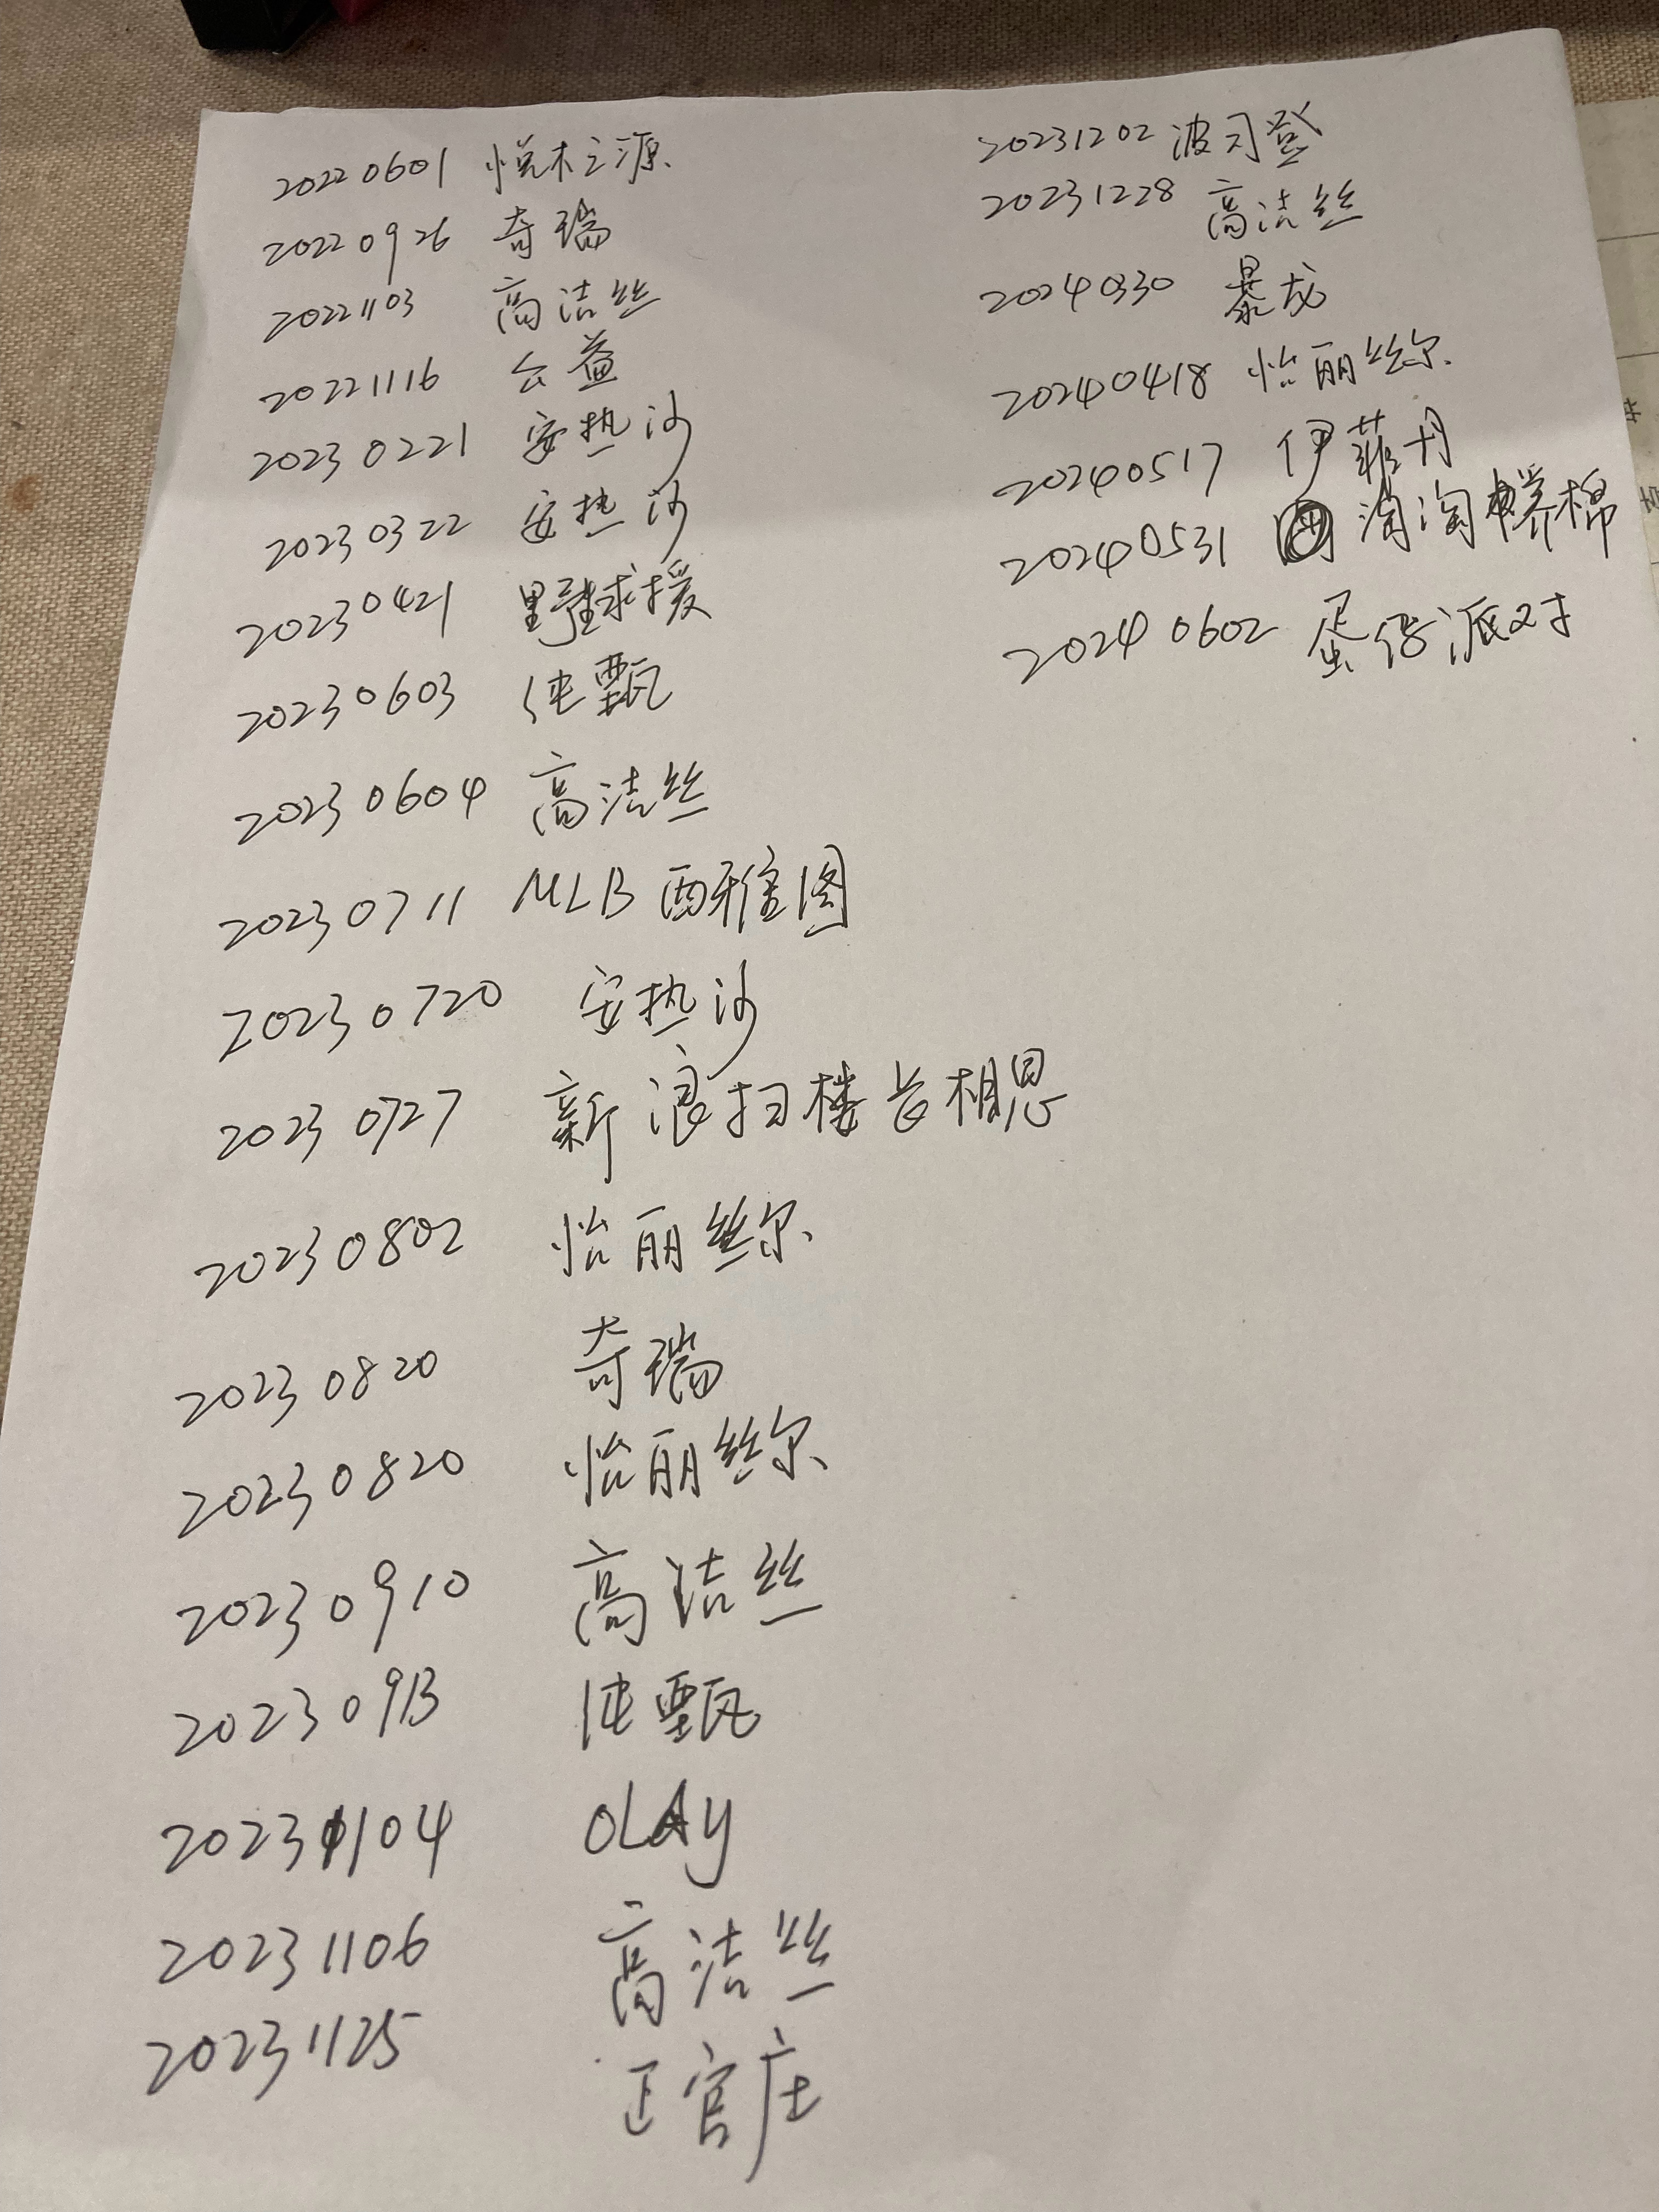 20220601 悦木之源
20220926 奇瑞
20221103 高洁丝
20221116 公益
20230221 安热沙
20230322 安热沙
20230421 野生救援
20230603 纯甄
20230604 高洁丝
20230711 MLB 西雅图
20230720 安热沙
20230727 新浪扫楼长相思
20230802 怡丽丝尔
20230820 奇瑞
20230820 怡丽丝尔
20230910 高洁丝
20230913 纯甄
20231104 OLAY
20231106 高洁丝
20231125 正官庄
20231202 波司登
20231228 高洁丝
20240330 暴龙
20240418 怡丽丝尔
20240517 伊菲丹
20240531 淘淘氧棉
20240602 蛋仔派对